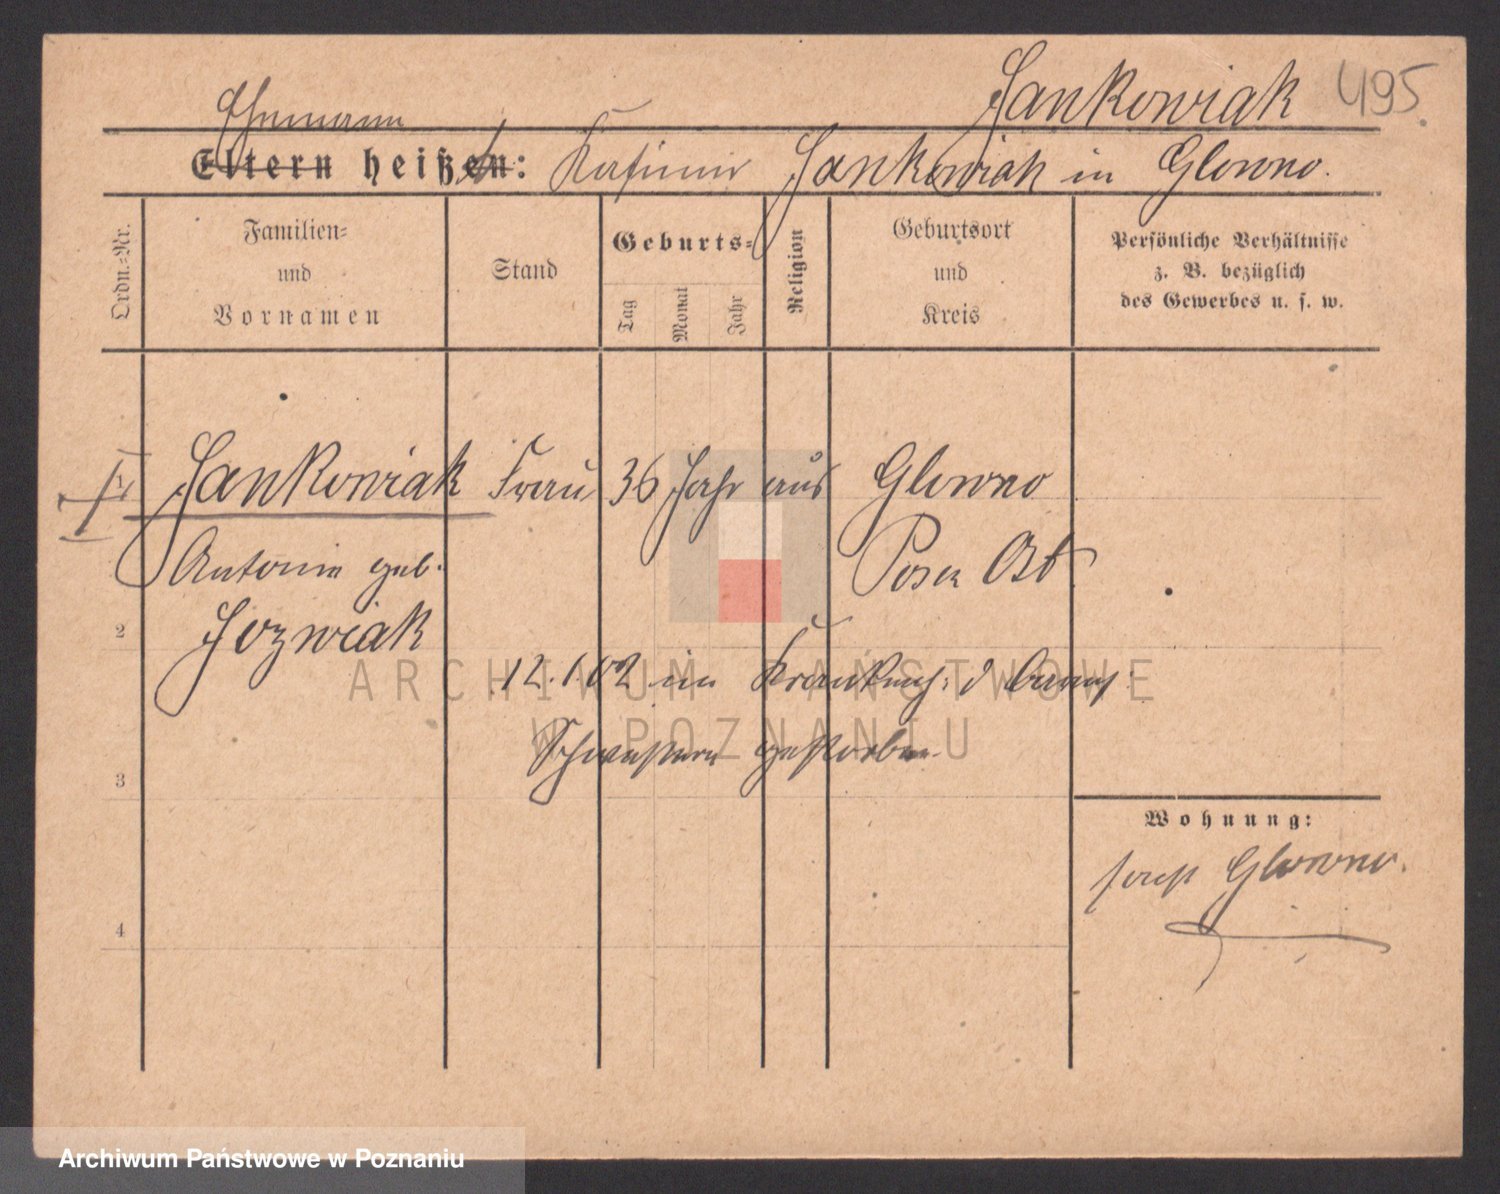 Jankowiak 495.
Ehemann
Eltern heißen: Kasimir Jankowiak in Glowno.
Ordn.-Nr.
Familien-
und
Vornamen
Stand
Geburts-
Tag
Monat
Jahr
Religion
Geburtsort
und
Kreis
Persönliche Verhältnisse
z. B. bezüglich
des Gewerbes u. s. w.
Jankowiak Frau 36 Jahr aus Glowno
Antonie geb. Posen Ost
2 Jozwiak
12.1.02 im Krankenh. d barmh.
Schwestern gestorben.
3
Wohnung:
Glowno.
4
ARCHIWUM PAŃSTWOWE
W POZNANIU
Archiwum Państwowe w Poznaniu